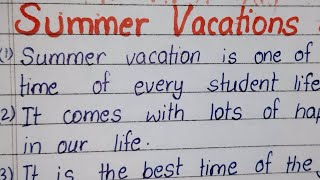 Summer Vacations
(1) Summer vacation is one of
time of every student life
2) It comes with lots of
in our life.
3) It is the best time of the